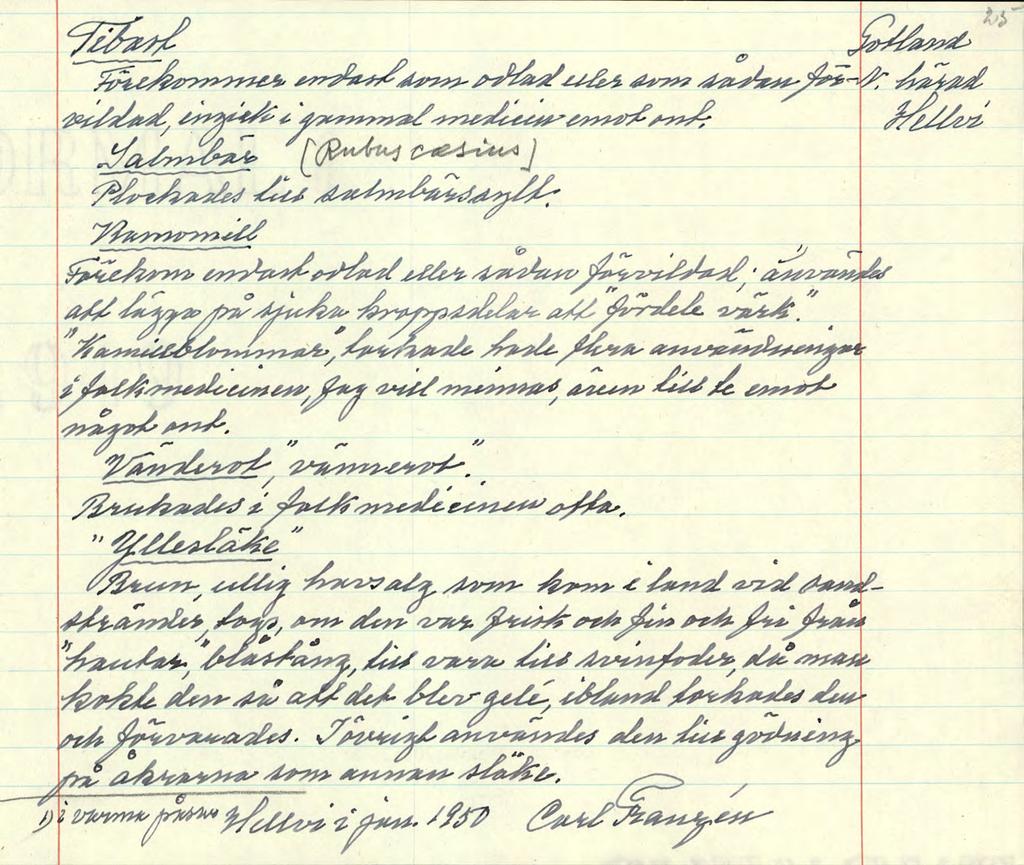 25
Tibast
Gotland
Förekommer endast som odlad eller som sådan för-
N. härad
vildad, ingick i gammal medicin emot ont.
Hellvi
Salmbär [Rubus cæsius]
Plockades till salmbärssylt.
Kamomill
Förekom endast odlad eller sådan förvildad; användes
att lägga på sjuka kroppsdelar att "fördele värk".
"Kamilblommar", torkade hade flera användningar
i folkmedicinen, jag vill minnas, även till te emot
något ont.
Vänderot, "vännerot".
Brukades i folkmedicinen ofta.
"Ylleslåke"
Brun, ullig havsalg, som kom i land vid sand-
stränder, togs, om den var frisk och fin och fri från
"hautar", blåstång, till vara till svinfoder, då man
kokte den så att det blev gelé, ibland torkades den
och förvarades. I övrigt användes den till gödning
på åkrarna som annan släke.
1) i varma påsar
Hellvi i jan. 1950 Carl Franzén